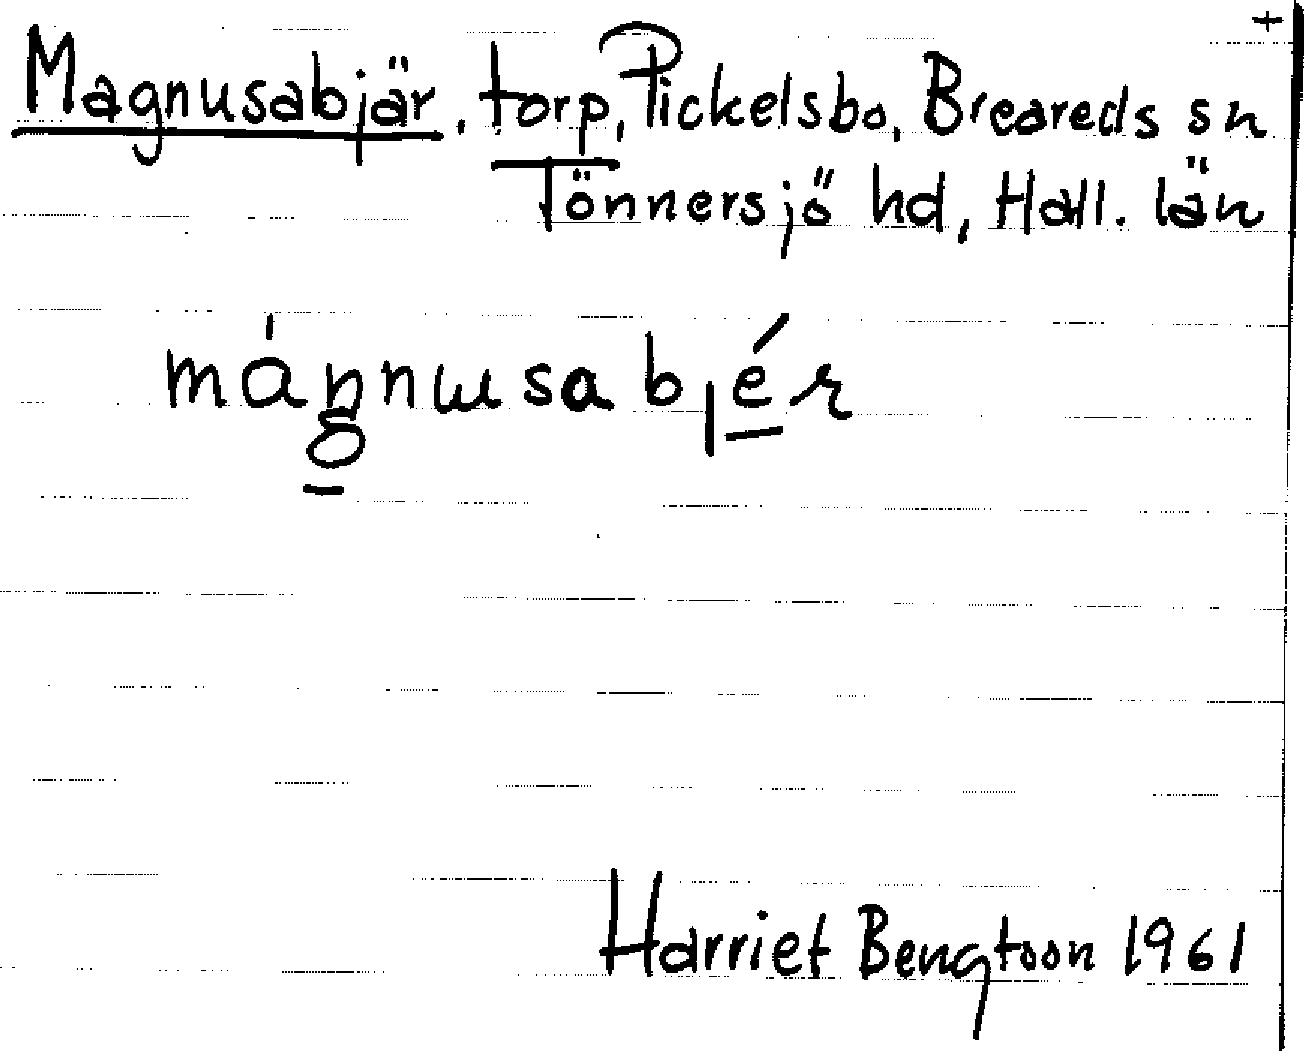 +
Magnusabjär, torp, Pickelsbo, Breareds sn
Tönnersjö hd, Hall. län
máŋnɯsabjér
Harriet Bengtson 1961